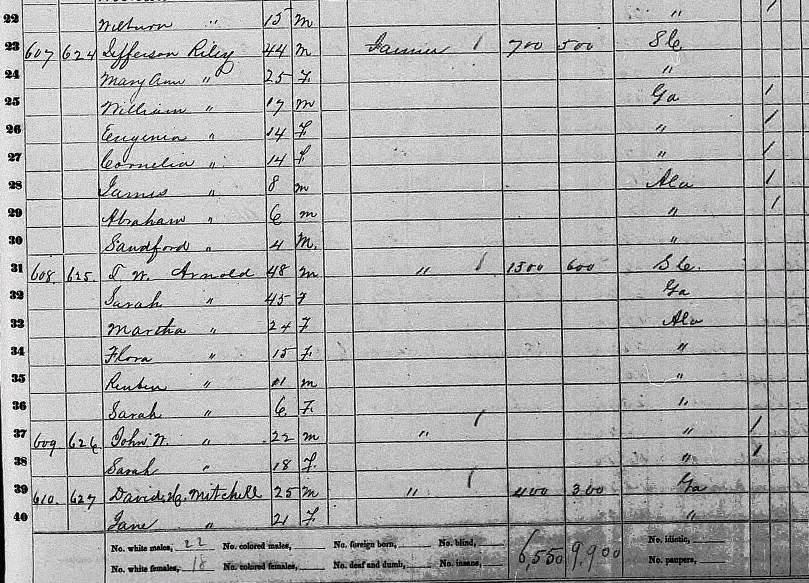 22 Wilburn " 15 M " 1
23 607 624 Jefferson Riley 44 M Farmer 1 700 500 S C
24 Mary Ann " 25 F. "
25 William " 17 M Ga 1
26 Eugenia " 14 F. " 1
27 Cornelia " 14 F. " 1
28 James " 8 M Ala 1
29 Abraham " 6 M " 1
30 Sandford " 4 M. "
31 608. 625. J. W. Arnold 48 M " 1500 600 S C.
32 Sarah " 45 F Ga
33 Martha " 24 F. Ala
34 Flora " 15 F. "
35 Reuben " 11 M "
36 Sarah " 6 F. "
37 609. 626 John W. " 22 M " 1 " 1
38 Sarah " 18 F. " 1
39 610. 627 David H. Mitchell 25 M " 1 400 300 Ga
40 Jane " 21 F. "
No. white males, 22 No. colored males, No. foreign born, No. blind, 6,550 9,900 No. idiotic,
No. white females, 18 No. colored females, No. deaf and dumb, No. insane, No. paupers,